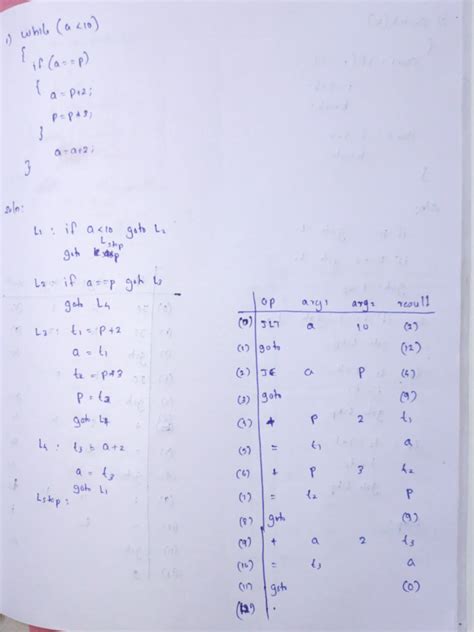 1) while (a<10)
{
if (a==p)
{
a=p+2;
p=p+3;
}
a=a+2;
}
soln:
L1 : if a<10 goto L2
goto Lstop
L2 : if a==p goto L3
goto L4
L3 : t1=p+2
a = t1
t2 = p+3
p = t2
goto L4
L4 : t3 = a+2
a = t3
goto L1
Lstop :
op arg1 arg2 result
(0) JLT a 10 (2)
(1) goto (12)
(2) JE a p (4)
(3) goto (9)
(4) + p 2 t1
(5) = t1 a
(6) + p 3 t2
(7) = t2 p
(8) goto (9)
(9) + a 2 t3
(10) = t3 a
(11) goto (0)
(12) .